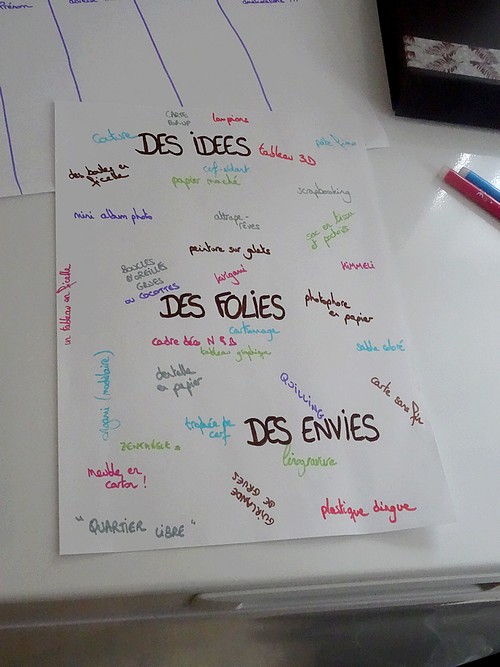 Prénom
CARTE
POP-UP
lampions
couture
DES IDEES
tableau 3D
pate fimo
des boules en
ficelle
cerf-volant
papier maché
scrapbooking
mini album photo
attrape-
rêves
sac en tissu
peinture sur galets
BOUCLES
D'OREILLES
GRUES
OU COCOTTES
kirigami
KIMMELI
un tableau en ficelle
DES FOLIES
photophore
en papier
cartonnage
cadre déco N & B
tableau graphique
sable coloré
dentelle
en papier
origami (modulaire)
QUILLING
carte sans fin
trophée de
cerf
DES ENVIES
ZENTANGLE
linogravure
meuble en
carton !
GUIRLANDE
DE GRUES
plastique dingue
"QUARTIER LIBRE"